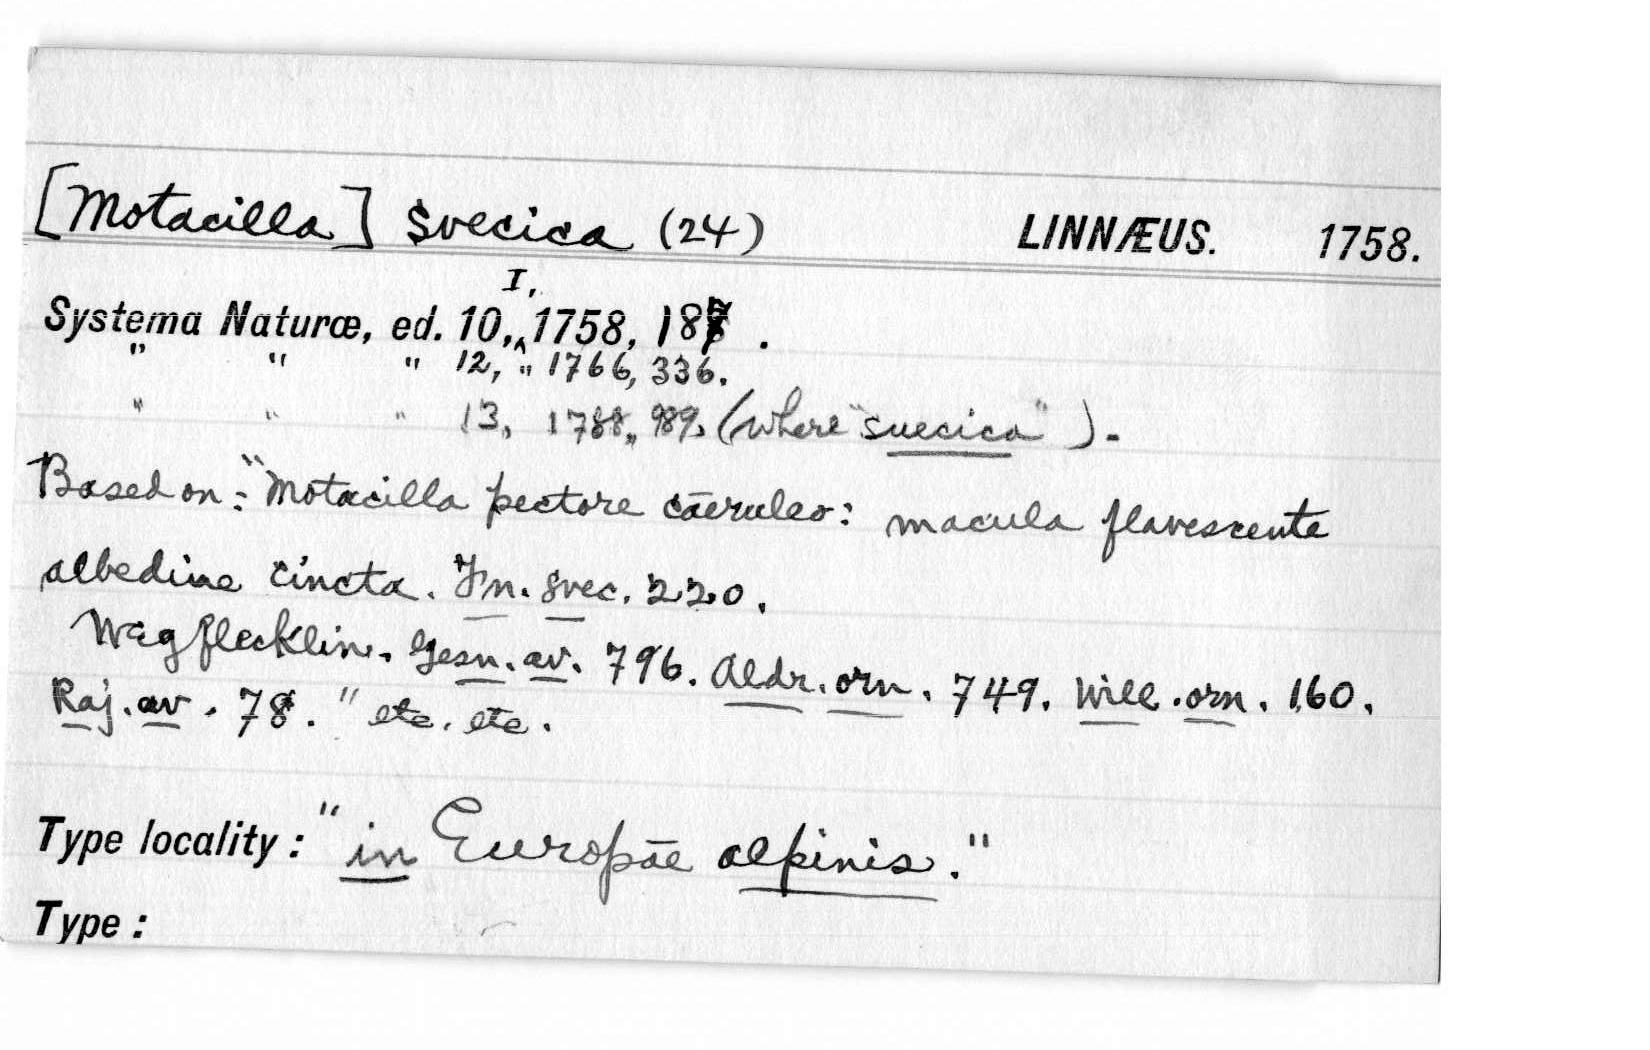 [Motacilla] Svecica (24) LINNÆUS. 1758.
I,
Systema Naturæ, ed. 10,^1758, 187.
" " " 12, " 1766, 336.
" " " 13, 1788, 989, (where "suecica").
Based on: "Motacilla pectore cæruleo: macula flavescente
albedine cincta. Fn. svec. 220.
Wegflecklin. Gesn. av. 796. Aldr. orn. 749. Will. orn. 160.
Raj. av. 78." etc. etc.
Type locality: "in Europæ alpinis."
Type: